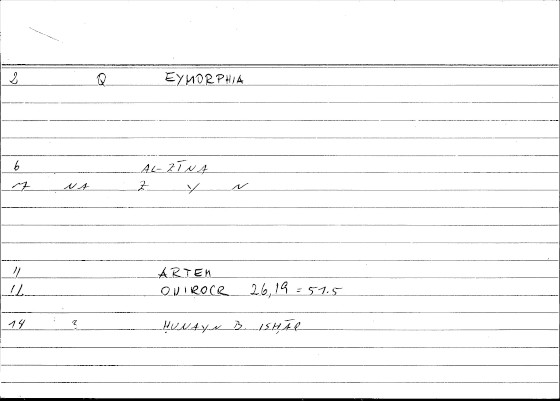 2 Q EYMORPHIA
6 AL-ZĪNA
7 NA Z Y N
11 ARTEM
12 ONIROCR 26,19 = 51.5
14 ? ḤUNAYN B. ISḤĀQ